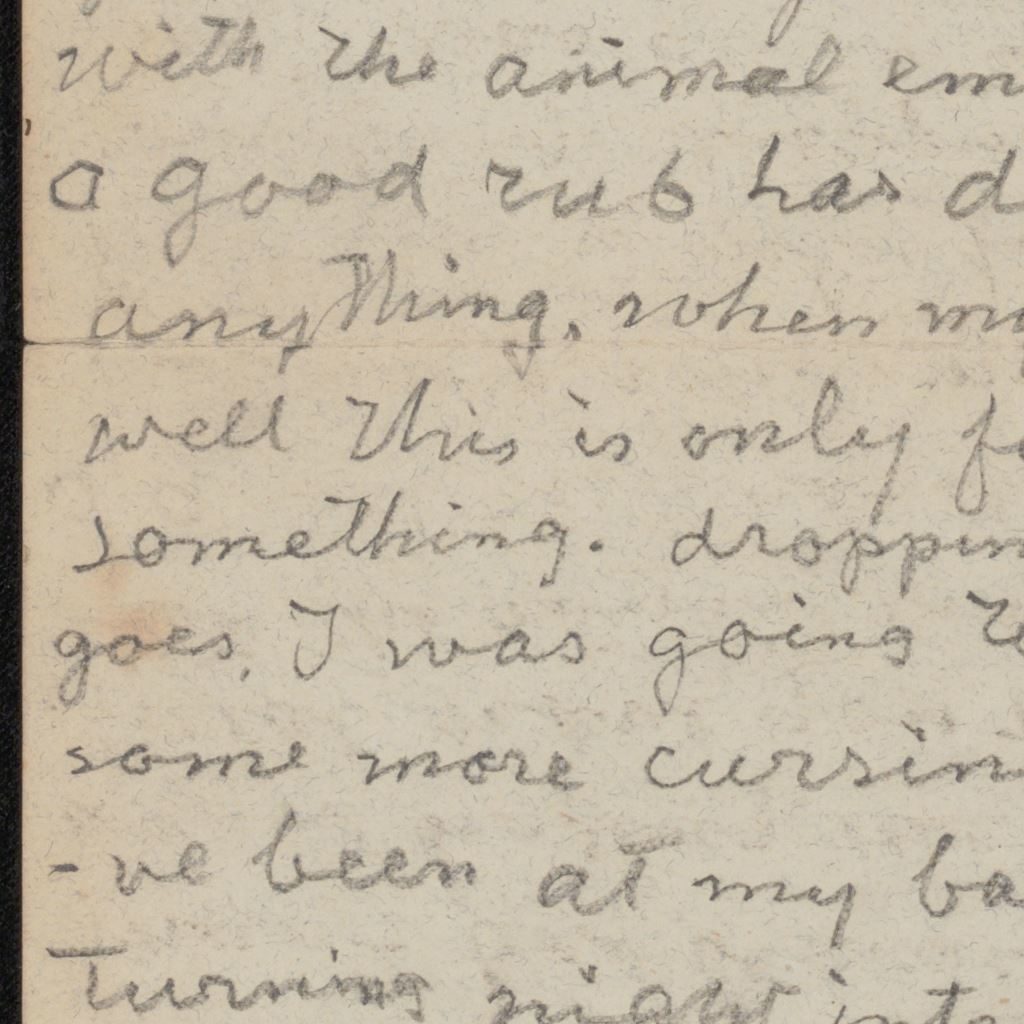 with the animal em
a good rub has d
anything. when my
well this is only fo
something. droppin
goes. I was going to
some more cursin
-ve been at my ba
Turning night into